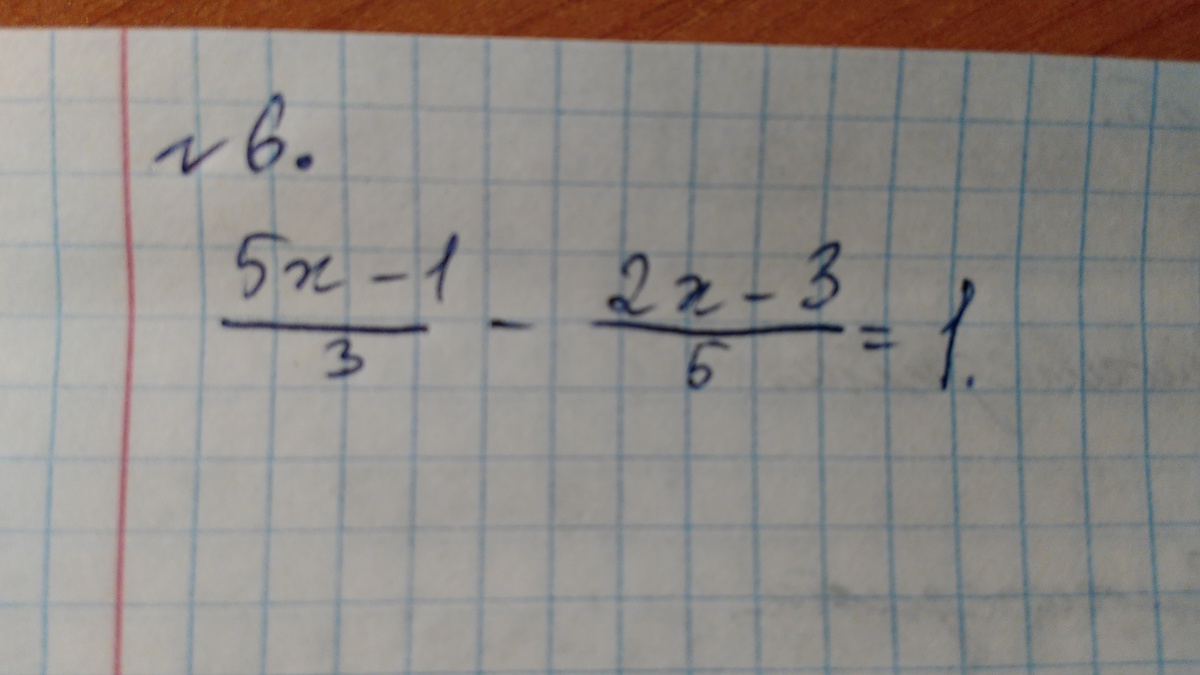 № 6.
(5x - 1)/3 - (2x - 3)/5 = 1.